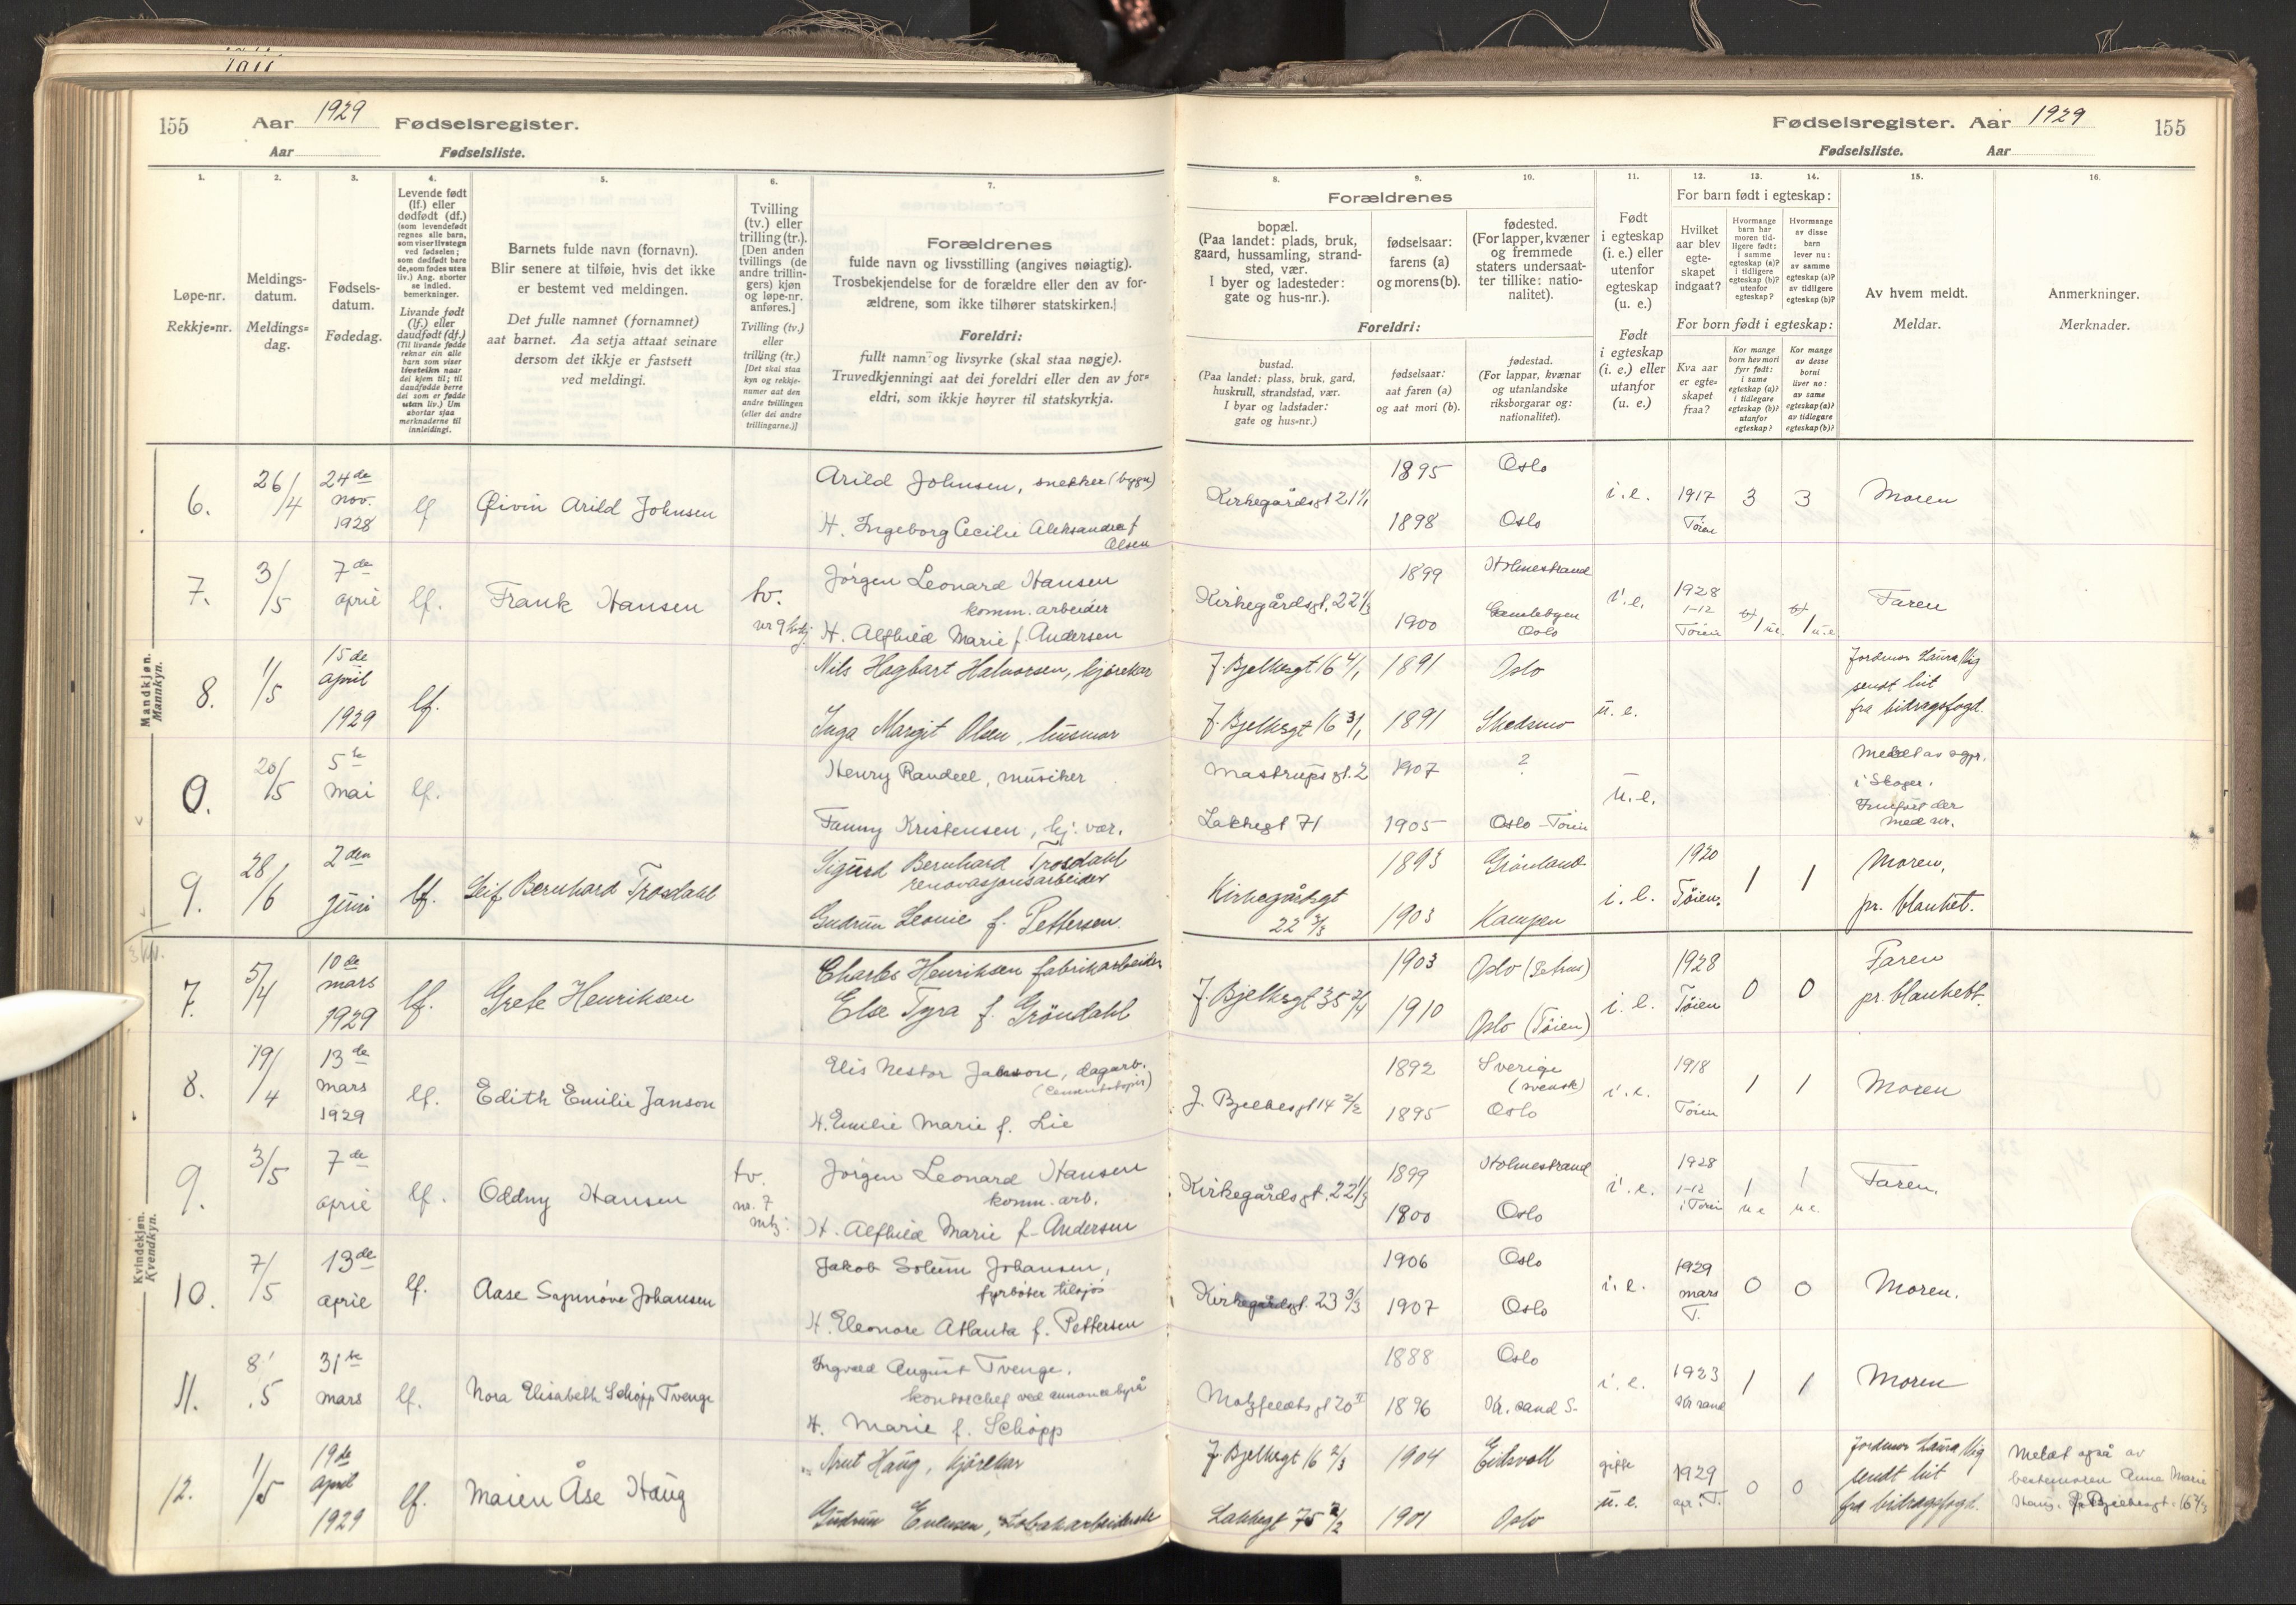 155 Aar 1929 Fødselsregister.
Aar Fødselsliste.
Fødselsregister. Aar 1929 155
Fødselsliste. Aar
1. 2. 3. 4. 5. 6. 7.
Løpe-nr.
Rekkje-nr.
Meldings-
datum.
Meldings-
dag.
Fødsels-
datum.
Fødedag.
Levende født
(lf.) eller
dødfødt (df.)
(som levendefødt
regnes alle barn,
som viser livstegn
ved fødselen;
som dødfødt bare
de, som fødes uten
liv.) Ang. aborter
se indled.
bemerkninger.
Livande født
(lf.) eller
daudfødt (df.)
(Til livande fødde
reknar ein alle
barn som viser
livsteikn naar
dei kjem til; til
daudfødde berre
dei som er fødde
utan liv.) Um
abortar sjaa
merknaderne til
innleidingi.
Barnets fulde navn (fornavn).
Blir senere at tilføie, hvis det ikke
er bestemt ved meldingen.
Det fulle namnet (fornamnet)
aat barnet. Aa setja attaat seinare
dersom det ikkje er fastsett
ved meldingi.
Tvilling
(tv.) eller
trilling (tr.)
[Den anden
tvillings (de
andre trillin-
gers) kjøn
og løpe-nr.
anføres.]
Tvilling (tv.)
eller
trilling (tr.)
[Det skal staa
kyn og rekkje-
numer aat den
andre tvillingen
(eller dei andre
trillingarne.)]
Forældrenes
fulde navn og livsstilling (angives nøiagtig).
Trosbekjendelse for de forældre eller den av for-
ældrene, som ikke tilhører statskirken.
Foreldri:
fullt namn og livsyrke (skal staa nøgje).
Truvedkjenningi aat dei foreldri eller den av for-
eldri, som ikkje høyrer til statskyrkja.
8. 9. 10. 11. 12. 13. 14. 15. 16.
Forældrenes
bopæl.
(Paa landet: plads, bruk,
gaard, hussamling, strand-
sted, vær.
I byer og ladesteder:
gate og hus-nr.).
fødselsaar:
farens (a)
og morens (b).
fødested.
(For lapper, kvæner
og fremmede
staters undersaat-
ter tillike: natio-
nalitet).
Foreldri:
bustad.
(Paa landet: plass, bruk, gard,
huskrull, strandstad, vær.
I byar og ladstader:
gate og hus-nr.)
fødselsaar:
aat faren (a)
og aat mori (b).
fødestad.
(For lappar, kvænar
og utanlandske
riksborgarar og:
nationalitet).
Født
i egteskap
(i. e.) eller
utenfor
egteskap
(u. e.)
Født
i egteskap
(i. e.) eller
utanfor
(u. e.)
For barn født i egteskap:
Hvilket
aar blev
egte-
skapet
indgaat?
Hvormange
barn har
moren tid-
ligere født:
i samme
egteskap (a)?
i tidligere
egteskap (b)?
utenfor
egteskap?
Hvormange
av disse
barn
lever nu:
av samme
egteskap (a)?
av tidligere
egteskap (b)?
For born født i egteskap:
Kva aar
er egte-
skapet
fraa?
Kor mange
born hev mori
fyrr født:
i same
egteskap (a)?
i tidlegare
egteskap (b)?
utanfor
egteskap?
Kor mange
av desse
borni
liver no:
av same
egteskap (a)?
av tidlegare
egteskap (b)?
Av hvem meldt.
Meldar.
Anmerkninger.
Merknader.
Mandkjøn.
Mannkyn.
6. 26/4 24de nov. 1928 lf Øivin Arild Johnsen
Arild Johnsen, snekker (bygn)
H. Ingeborg Cecilie Aleksandra f
Olsen
Kirkegårdsgt 21 1895 Oslo
1898 Oslo
i.e. 1917 Tøien 3 3 Moren
7. 3/5 7de april lf. Frank Hansen tv. nr 9 kvkj.
Jørgen Leonard Hansen
komm. arbeider
H. Alfhild Marie f. Andersen
Kirkegårdsgt. 22 1/3 1899 Holmestrand
1900 Gamlebyen Oslo
i.e. 1928 1-12 Tøien 1 u.e. 1 u.e. Faren
8. 1/5 15de april 1929 lf.
Nils Hagbart Halvorsen, kjørekar
Inga Margit Olsen, husmor
J. Bjelkesgt 16 4/1 1891 Oslo
J. Bjelkesgt 16 3/1 1891 Skedsmo
u. e.
Jordmor Laura Vig
sendt hit
fra bidragsfogd.
0. 20/5 5te mai lf.
Henry Randeel, musiker
Fanny Kristensen, hj. vær.
Mastrups gt. 2 1907 ?
Lakkegt 71 1905 Oslo - Tøien
u.e.
Meldt av sgpr.
i Skoger.
Innført der
med nr.
9. 28/6 2den juni lf. Leif Bernhard Trosdahl
Sigurd Bernhard Trosdahl
renovasjonsarbeider
Gudrun Leonie f. Pettersen.
Kirkegårdsgt
22 3/3
1893 Grønland
1903 Kampen
i. e. 1920 Tøien. 1 1
Moren,
pr. blankett.
Kvindekjøn.
Kvendkyn.
7. 5/4 10de mars 1929 lf. Grete Henriksen
Charles Henriksen fabrikarbeider
Else Tyra f. Grøndahl
J. Bjelkesgt 35 2/4 1903 Oslo (Petrus)
1910 Oslo (Tøien)
i. e. 1928 Tøien 0 0
Faren
pr. blankett.
8. 19/4 13de mars 1929 lf. Edith Emilie Janson
Elis Nestor Janson, dagarb.
H. Emilie Marie f. Lie
J. Bjelkesgt 14 2/2 1892 Sverige (svensk)
1895 Oslo
i.e. 1918 Tøien 1 1 Moren
9. 3/5 7de april lf. Oddny Hansen tv. nr. 7 mkj.
Jørgen Leonard Hansen
komm. arb.
H. Alfhild Marie f. Andersen
Kirkegårdsgt. 22 1/3 1899 Holmestrand
1900 Oslo
i.e. 1928 1-12 i Tøien 1 u e 1 u e. Faren.
10. 7/5 13de april lf. Aase Synnøve Johansen
Jakob Solum Johansen,
fyrbøter tilsjøs
H. Eleonore Atlanta f. Pettersen
Kirkegårdsgt. 23 3/3 1906 Oslo
1907 Oslo
i.e. 1929 mars T. 0 0 Moren.
11. 8/5 31te mars lf. Nora Elisabeth Schøpp Tvenge
Ingvald August Tvenge.
kontorchef ved annoncebyrå
H. Marie f. Schøpp
Motzfeldtsgt 20 II 1888 Oslo
1896 Kr. sand S.
i.e. 1923 Kr sand 1 1 Moren
12. 1/5 19de april 1929 lf. Maien Åse Haug
Arut Haug, kjørekar
Gudrun Evensen, tobakarbeiderske
J. Bjelkesgt 16 2/3 1904 Eidsvoll
Lakkegt 75 2/2 1901 Oslo
gifte u. e. 1929 apr. i T. 0 0
Jordmor Laura Vig
sendt hit
fra bidragsfogd.
Meldt også av
bestemoren Anna Marie
Haug, J. Bjelkesgt. 16 2/3